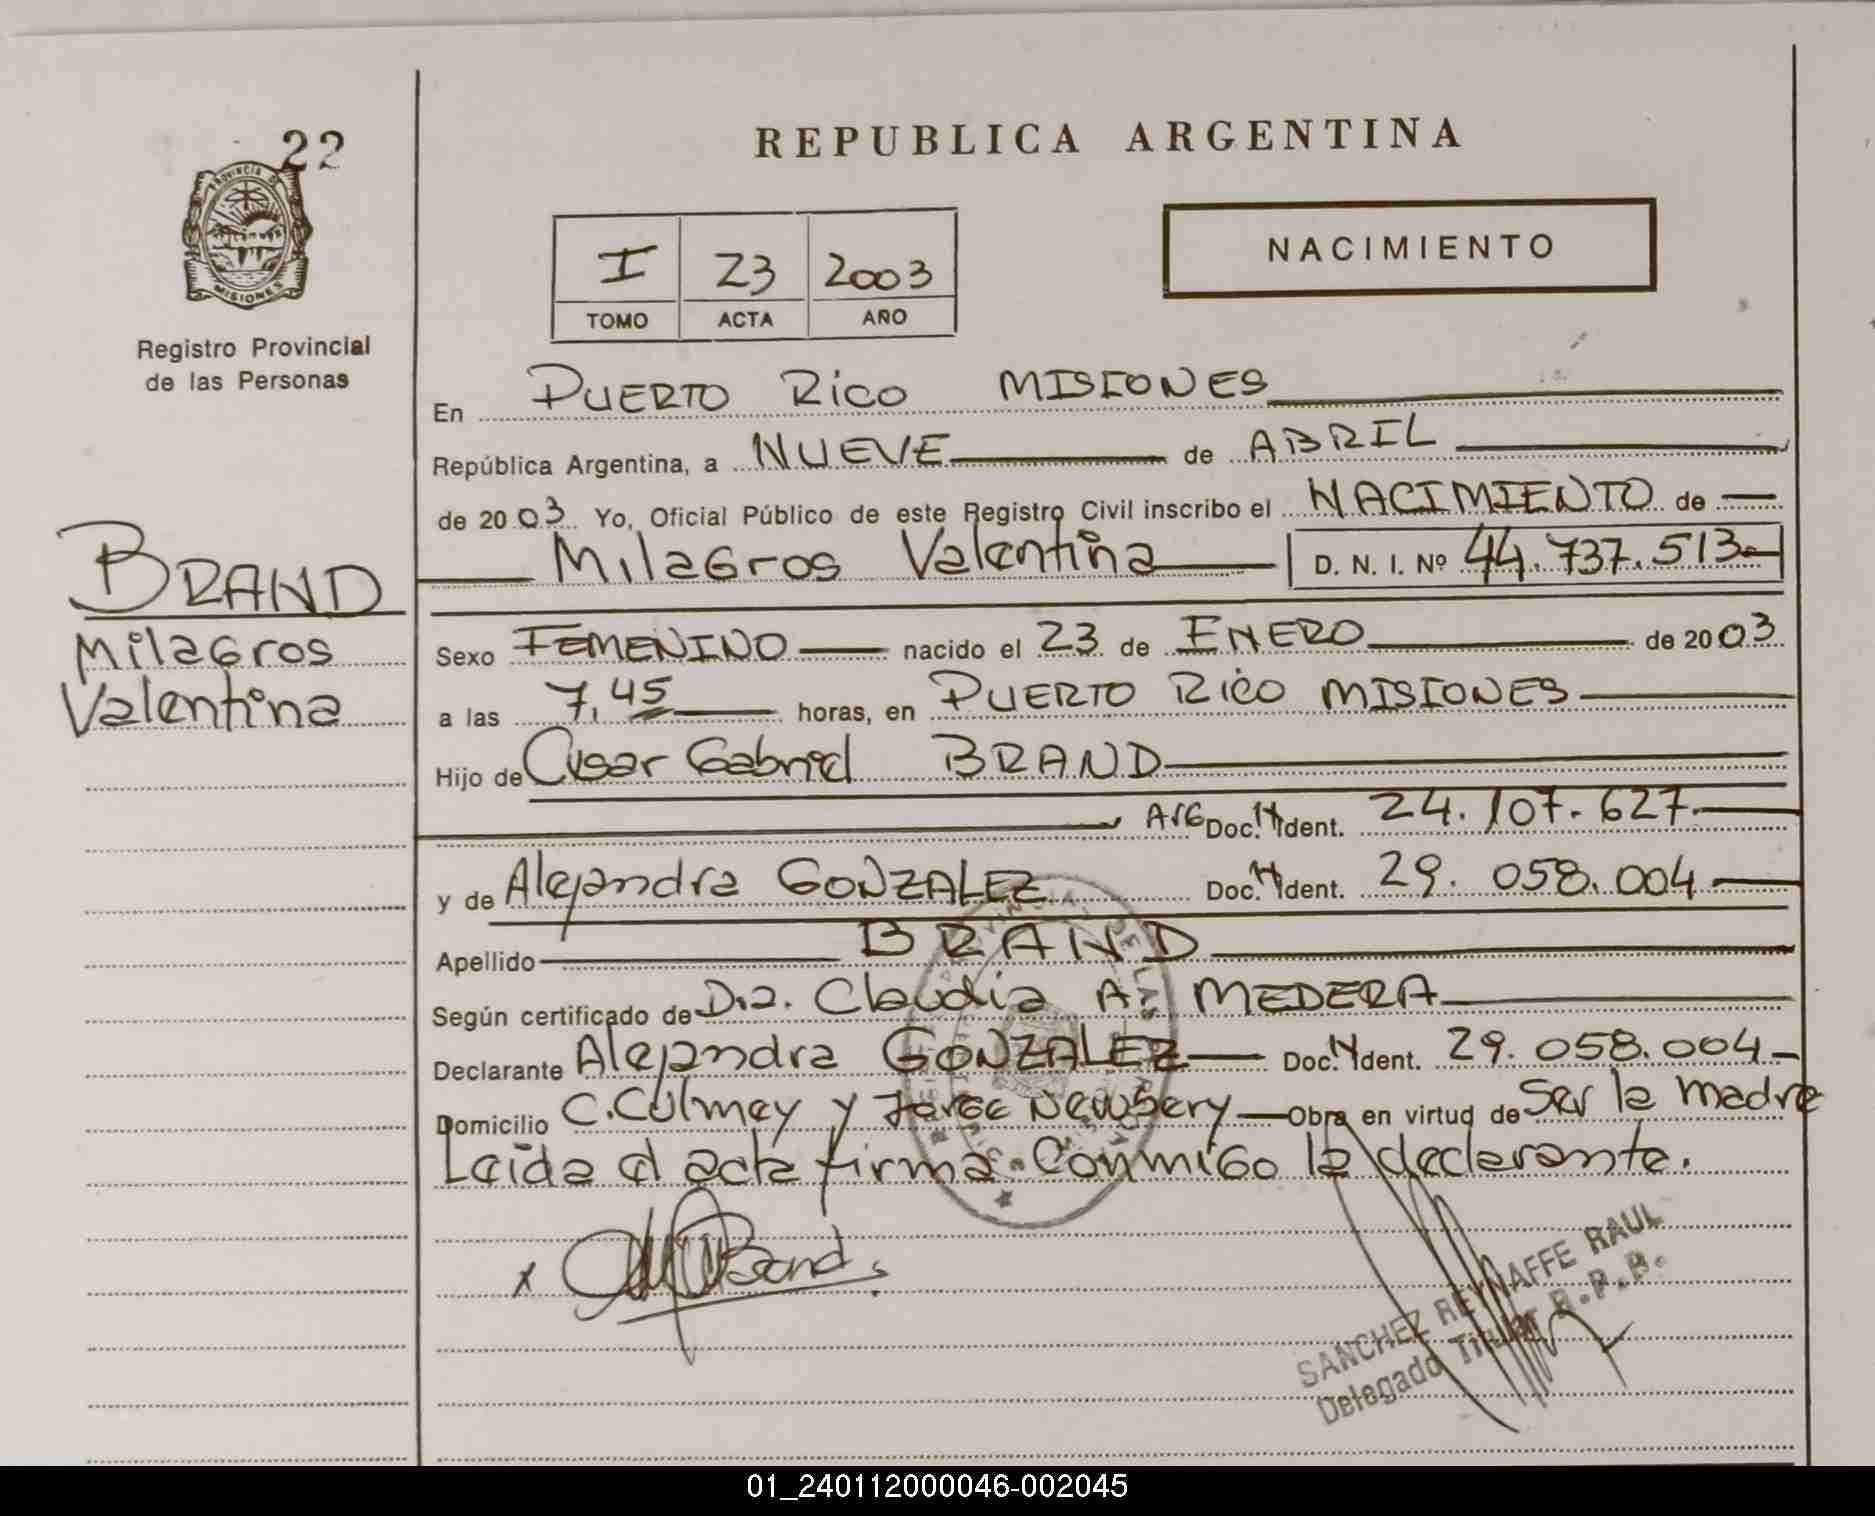 22
PROVINCIA DE
MISIONES
Registro Provincial
de las Personas
BRAND
Milagros
Valentina
REPUBLICA ARGENTINA
NACIMIENTO
I 23 2003
TOMO ACTA AÑO
En PUERTO RICO MISIONES
República Argentina, a NUEVE de ABRIL
de 2003 Yo, Oficial Público de este Registro Civil inscribo el NACIMIENTO de
Milagros Valentina D. N. I. Nº 44.737.513
Sexo FEMENINO nacido el 23 de ENERO de 2003
a las 7,45 horas, en PUERTO RICO MISIONES
Hijo de Cesar Gabriel BRAND
ArG Doc. Ident. 24.107.627
y de Alejandra GONZALEZ Doc. Ident. 29.058.004
Apellido BRAND
Según certificado de Dra. Claudia A. MEDERA
Declarante Alejandra GONZALEZ Doc. Ident. 29.058.004
Domicilio C. Culmey y Jorge Newbery Obra en virtud de Ser la madre
Leida el acta firma Conmigo la declarante.
x Brand
SANCHEZ REYNAFFE RAUL
Delegado Titular R.P.P.
01_240112000046-002045